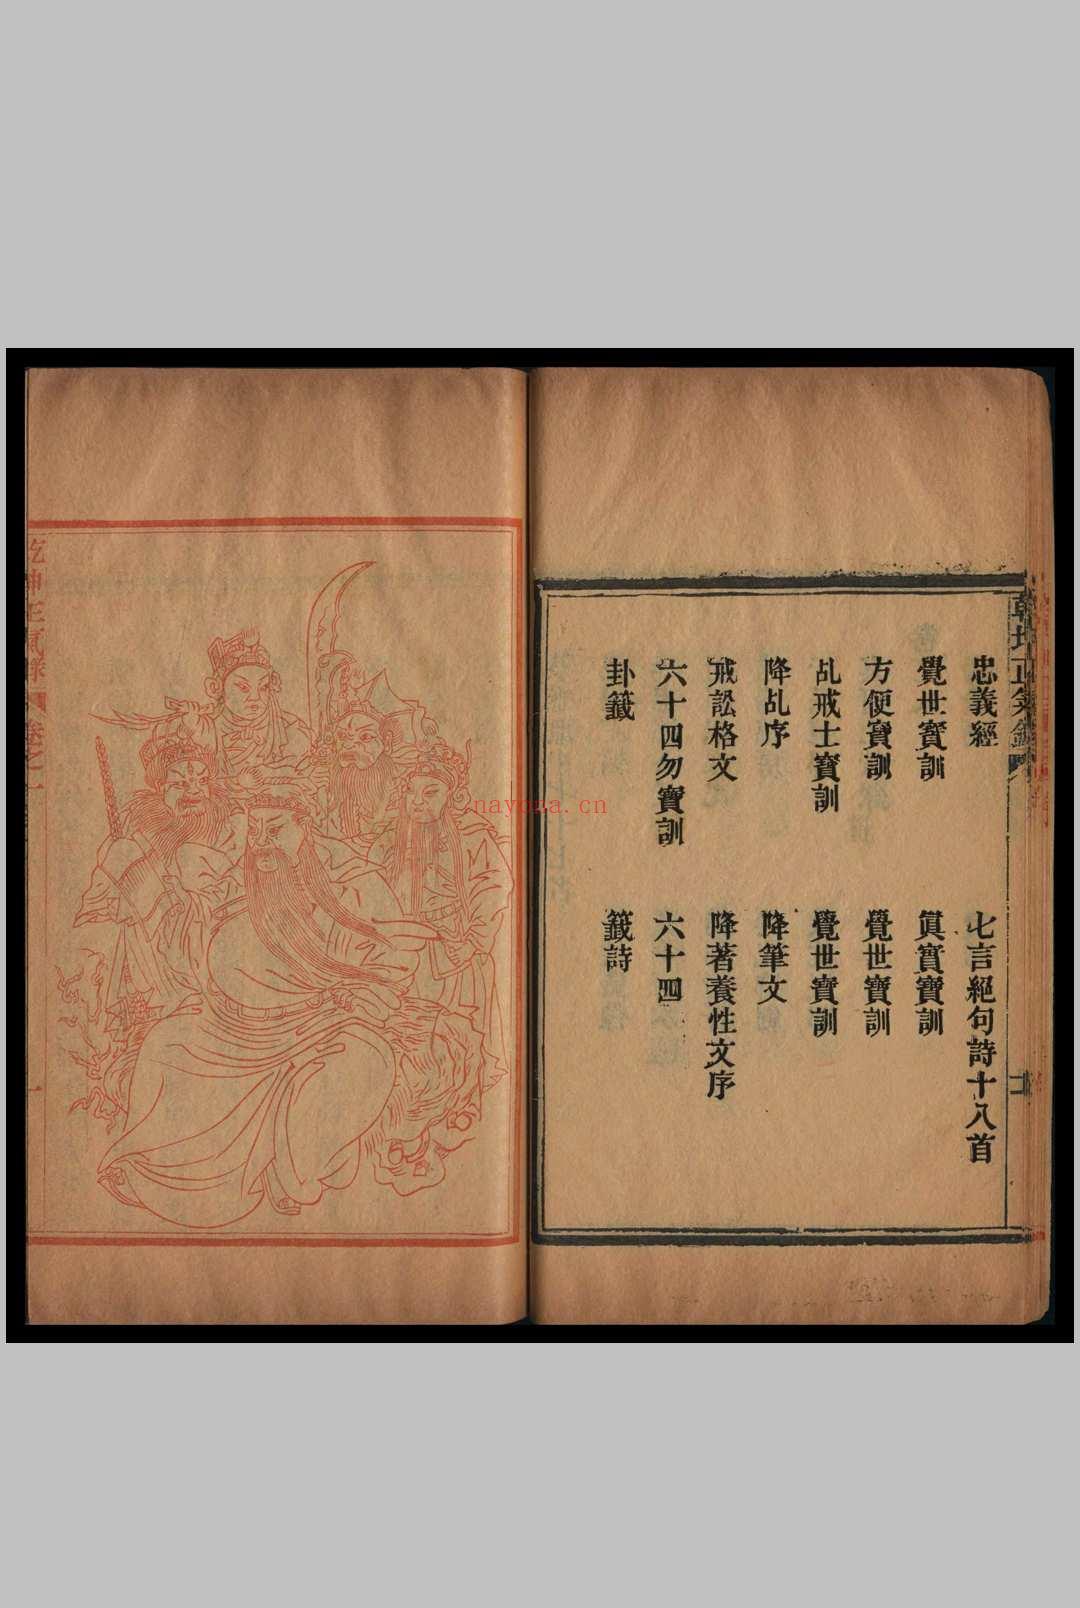 忠義經
七言絕句詩十八首
覺世寶訓
真實寶訓
方便寶訓
覺世寶訓
乩戒士寶訓
覺世寶訓
降乩序
降筆文
戒訟格文
降著養性文序
六十四勿寶訓
六十四
卦籤
籤詩
乾坤正氣錄
卷之一
一
nayoga.cn